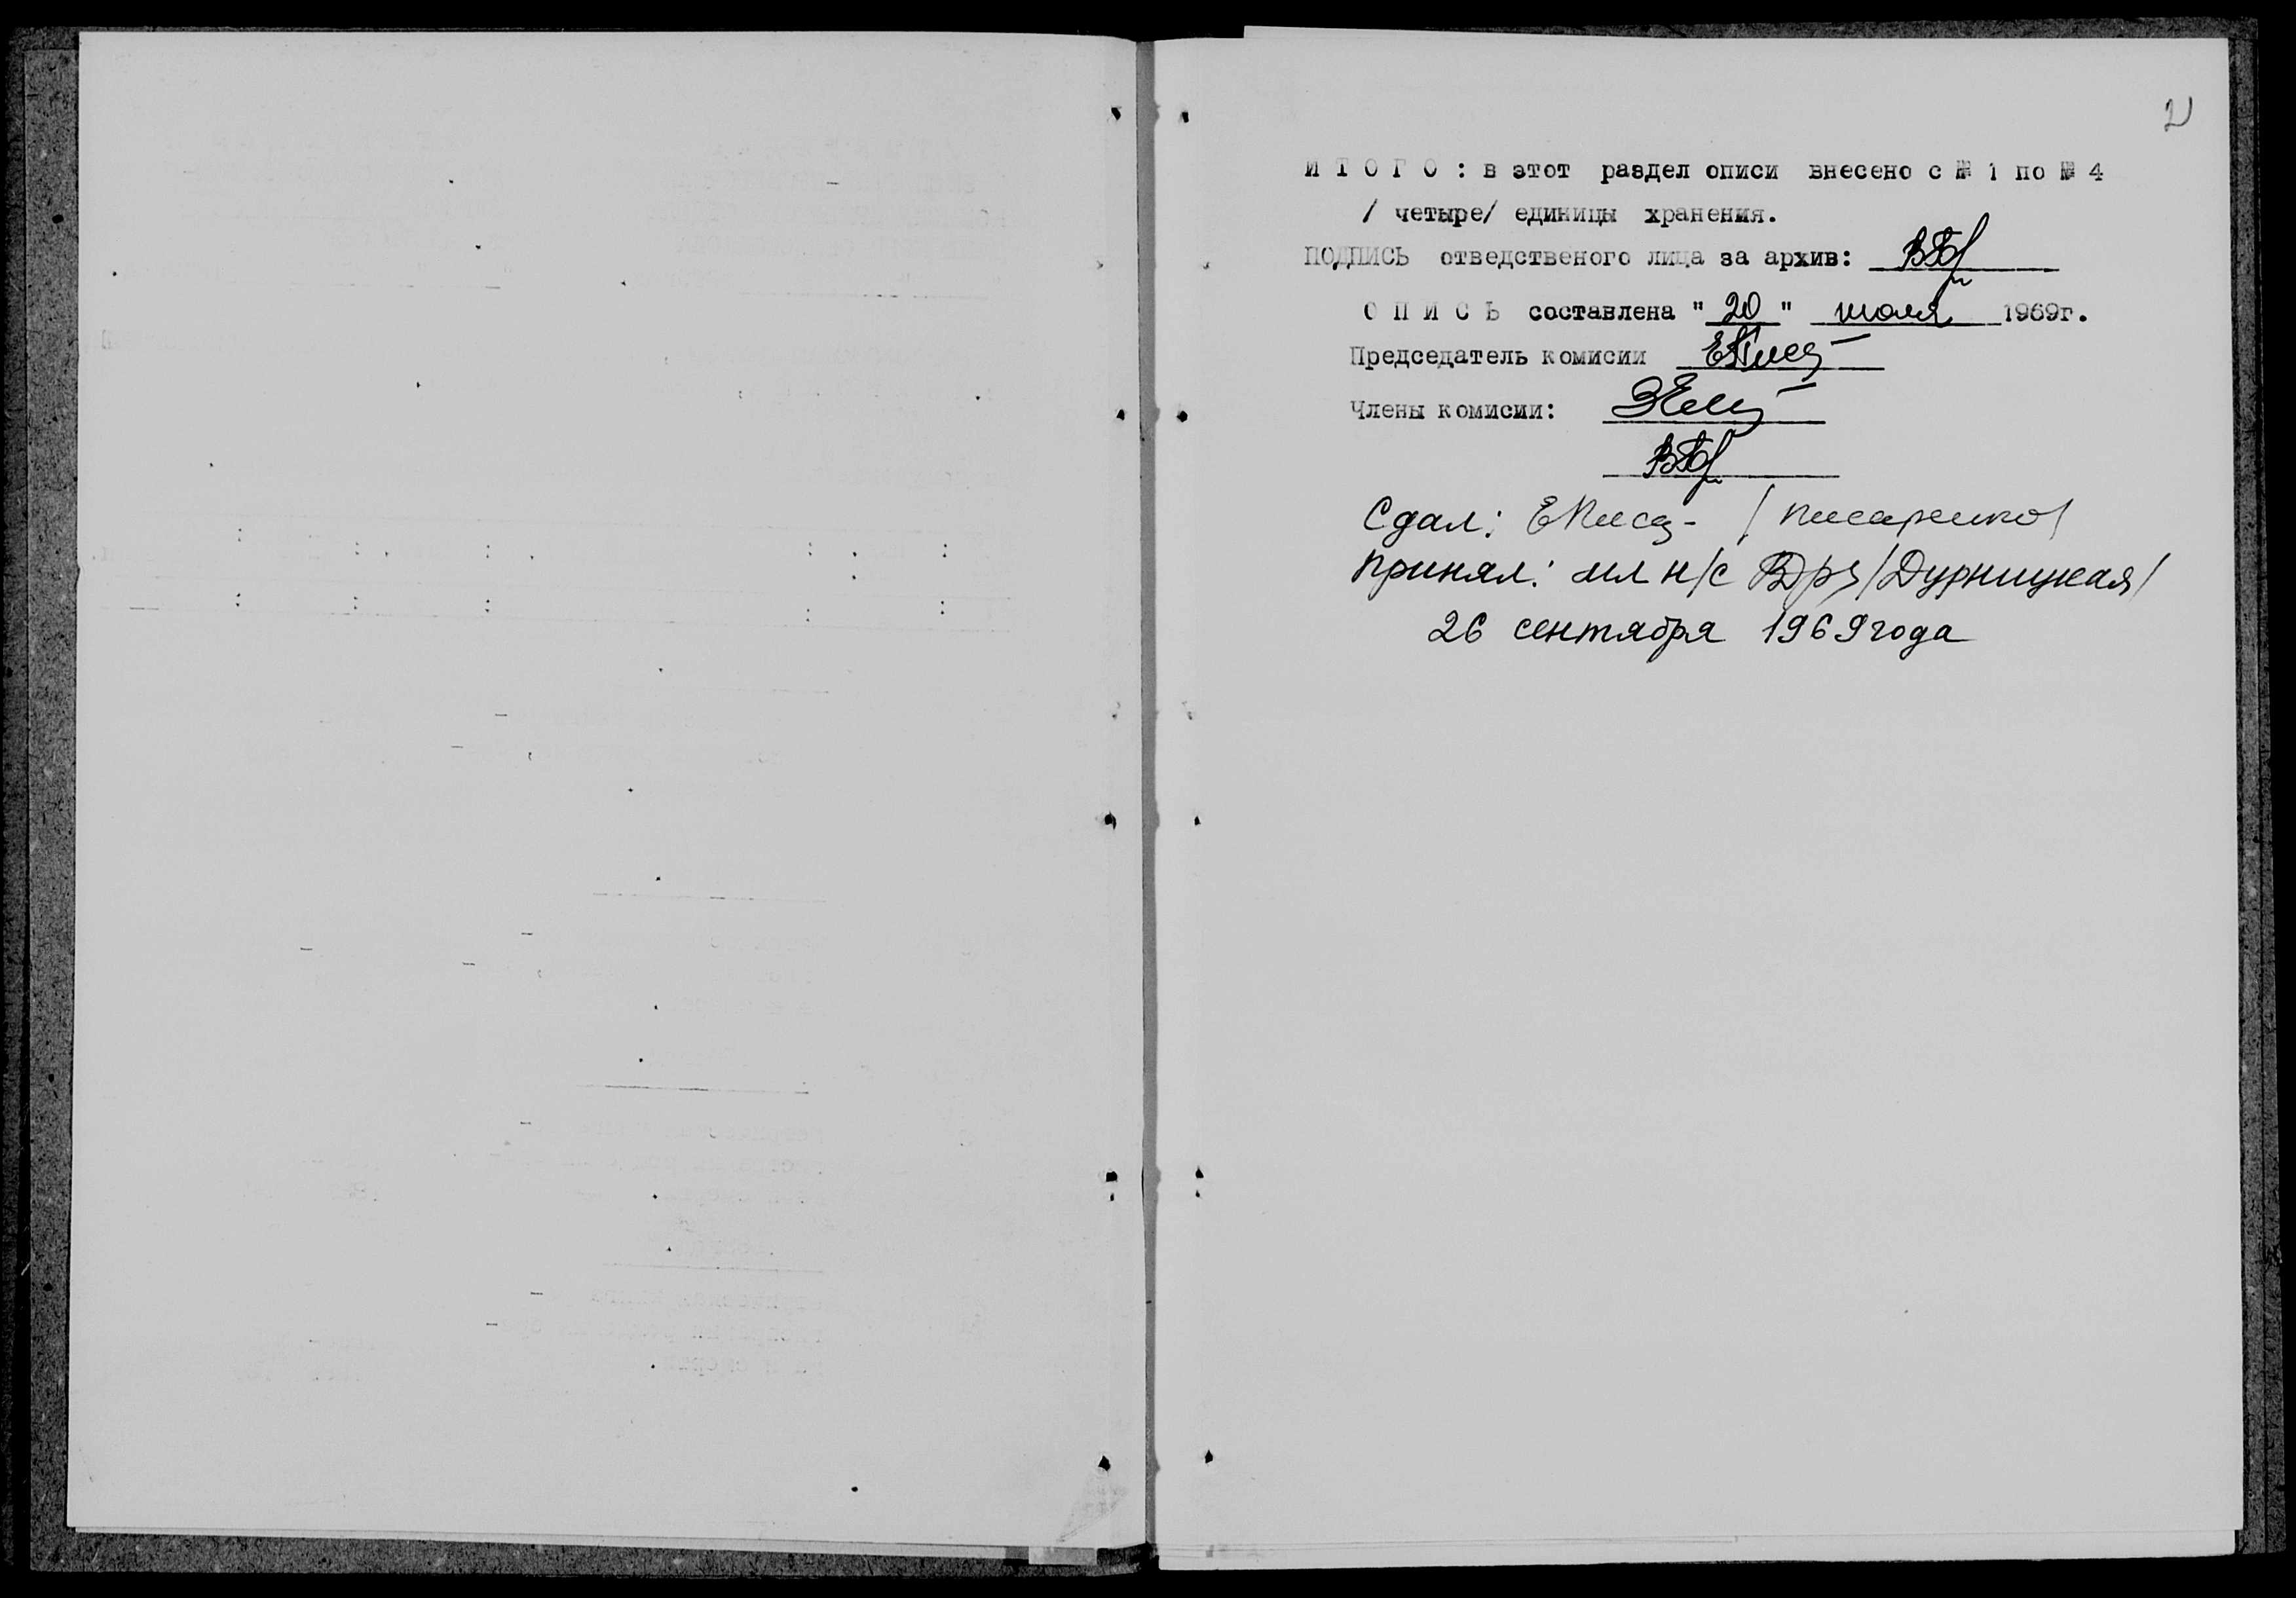 2
И Т О Г О : в этот раздел описи внесено с № 1 по № 4
/ четыре/ единицы хранения.
ПОДПИСЬ отведственого лица за архив:
О П И С Ь составлена " 20 " июля 1969г.
Председатель комисии
Члены комисии:
Сдал: ЕПиса- /Писаренко/
Принял: мл н/с /Дурницкая/
26 сентября 1969 года